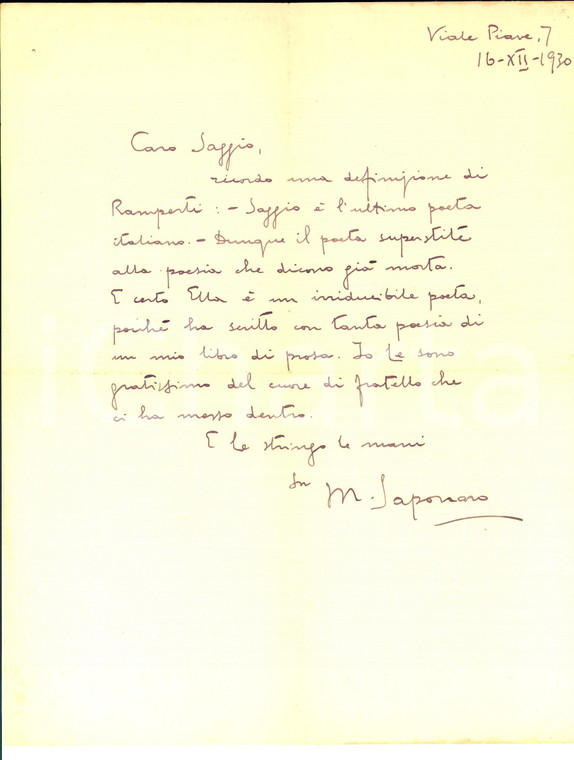 Viale Piave, 7
16-XII-1930
Caro Saggio,
ricordo una definizione di
Ramperti: - Saggio è l'ultimo poeta
italiano. - Dunque il poeta superstite
alla poesia che dicono già morta.
E certo Ella è un irriducibile poeta,
poiché ha scritto con tanta poesia di
un mio libro di prosa. Io Le sono
gratissimo del cuore di fratello che
ci ha messo dentro.
E Le stringo le mani
Suo
M. Saponaro